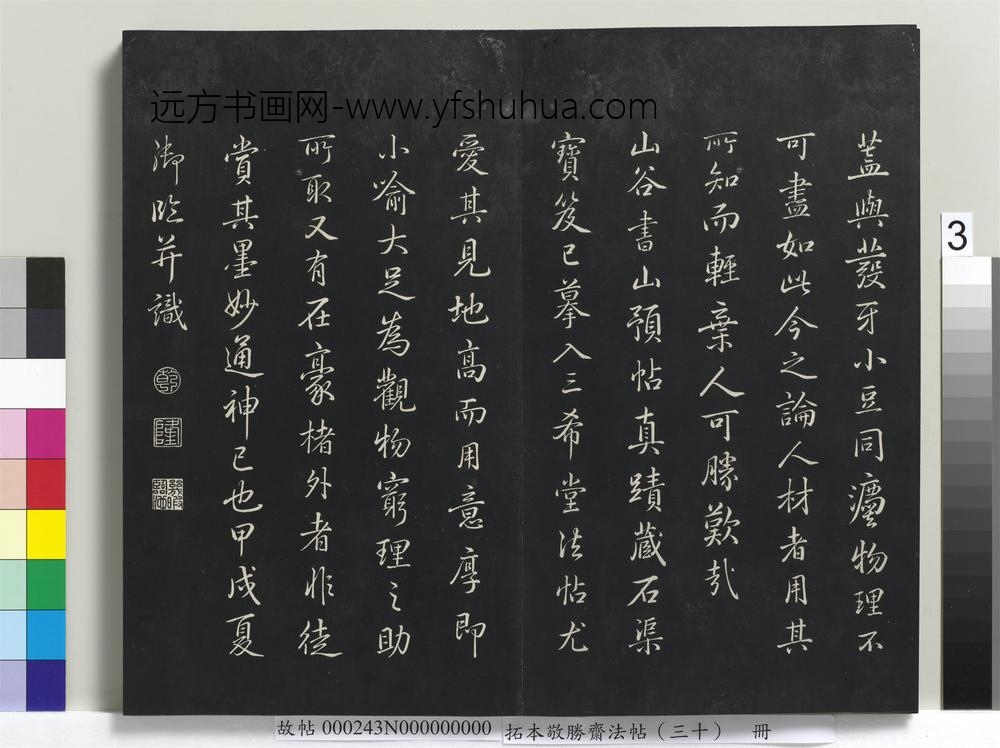 远方书画网-www.yfshuhua.com
葢與蕟牙小豆同癭物理不
可盡如此今之論人材者用其
所知而輕棄人可勝歎哉
山谷書山預帖真蹟藏石渠
寶笈已摹入三希堂法帖尤
愛其見地高而用意厚即
小喻大足為觀物窮理之助
所取又有在豪楮外者非徒
賞其墨妙通神已也甲戌夏
御臨并識
乾
隆
3
故帖 000243N000000000
拓本敬勝齋法帖（三十） 冊